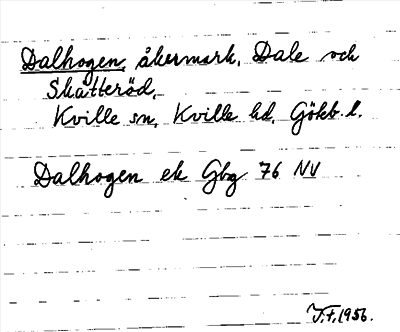 Dalhogen, åkermark, Dale och
Skatteröd,
Kville sn, Kville hd, Göteb. l.
Dalhogen ek Gbg 76 NV
J.f. 1956.